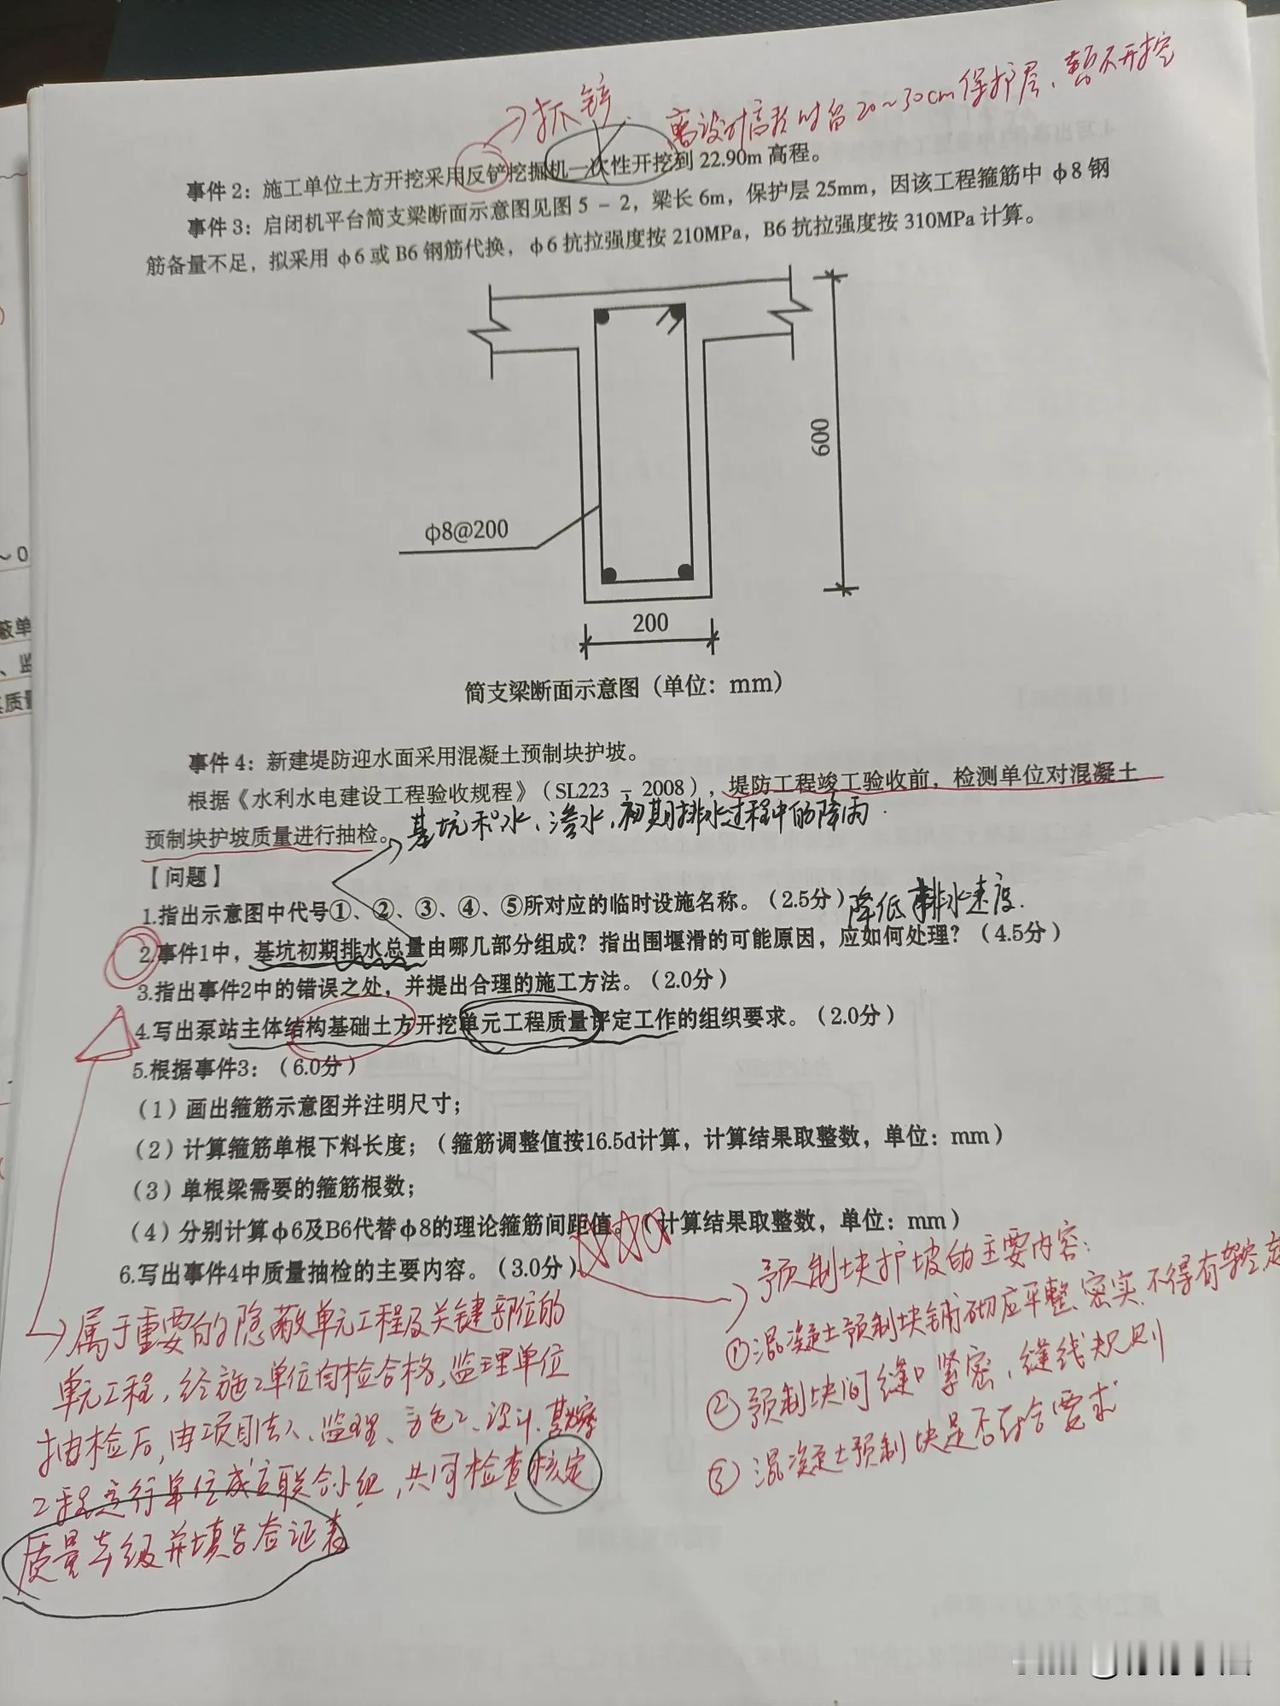 抓铲
离设计高程时留20~30cm保护层,暂不开挖
事件2：施工单位土方开挖采用反铲挖掘机一次性开挖到22.90m高程。
事件3：启闭机平台简支梁断面示意图见图5－2，梁长6m，保护层25mm，因该工程箍筋中ф8钢
筋备量不足，拟采用ф6或B6钢筋代换，ф6抗拉强度按210MPa，B6抗拉强度按310MPa计算。
600
ф8@200
200
简支梁断面示意图（单位：mm）
事件4：新建堤防迎水面采用混凝土预制块护坡。
根据《水利水电建设工程验收规程》（SL223－2008），堤防工程竣工验收前，检测单位对混凝土
预制块护坡质量进行抽检。
基坑积水、渗水,初期排水过程中的降雨.
【问题】
1.指出示意图中代号①、②、③、④、⑤所对应的临时设施名称。（2.5分）
降低排水速度.
2.事件1中，基坑初期排水总量由哪几部分组成？指出围堰滑的可能原因，应如何处理？（4.5分）
3.指出事件2中的错误之处，并提出合理的施工方法。（2.0分）
4.写出泵站主体结构基础土方开挖单元工程质量评定工作的组织要求。（2.0分）
5.根据事件3：（6.0分）
（1）画出箍筋示意图并注明尺寸；
（2）计算箍筋单根下料长度；（箍筋调整值按16.5d计算，计算结果取整数，单位：mm）
（3）单根梁需要的箍筋根数；
（4）分别计算ф6及B6代替ф8的理论箍筋间距值。（计算结果取整数，单位：mm）
6.写出事件4中质量抽检的主要内容。（3.0分）
属于重要的隐蔽单元工程及关键部位的
单元工程,经施工单位自检合格,监理单位
抽检后,由项目法人、监理、施工、设计、
工程运行单位成立联合小组,共同检查核定
质量等级并填写签证表
预制块护坡的主要内容:
①混凝土预制块铺砌应平整、密实,不得有架空
②预制块间缝口紧密,缝线规则
③混凝土预制块是否符合要求
~0
蔽单
、监
质量